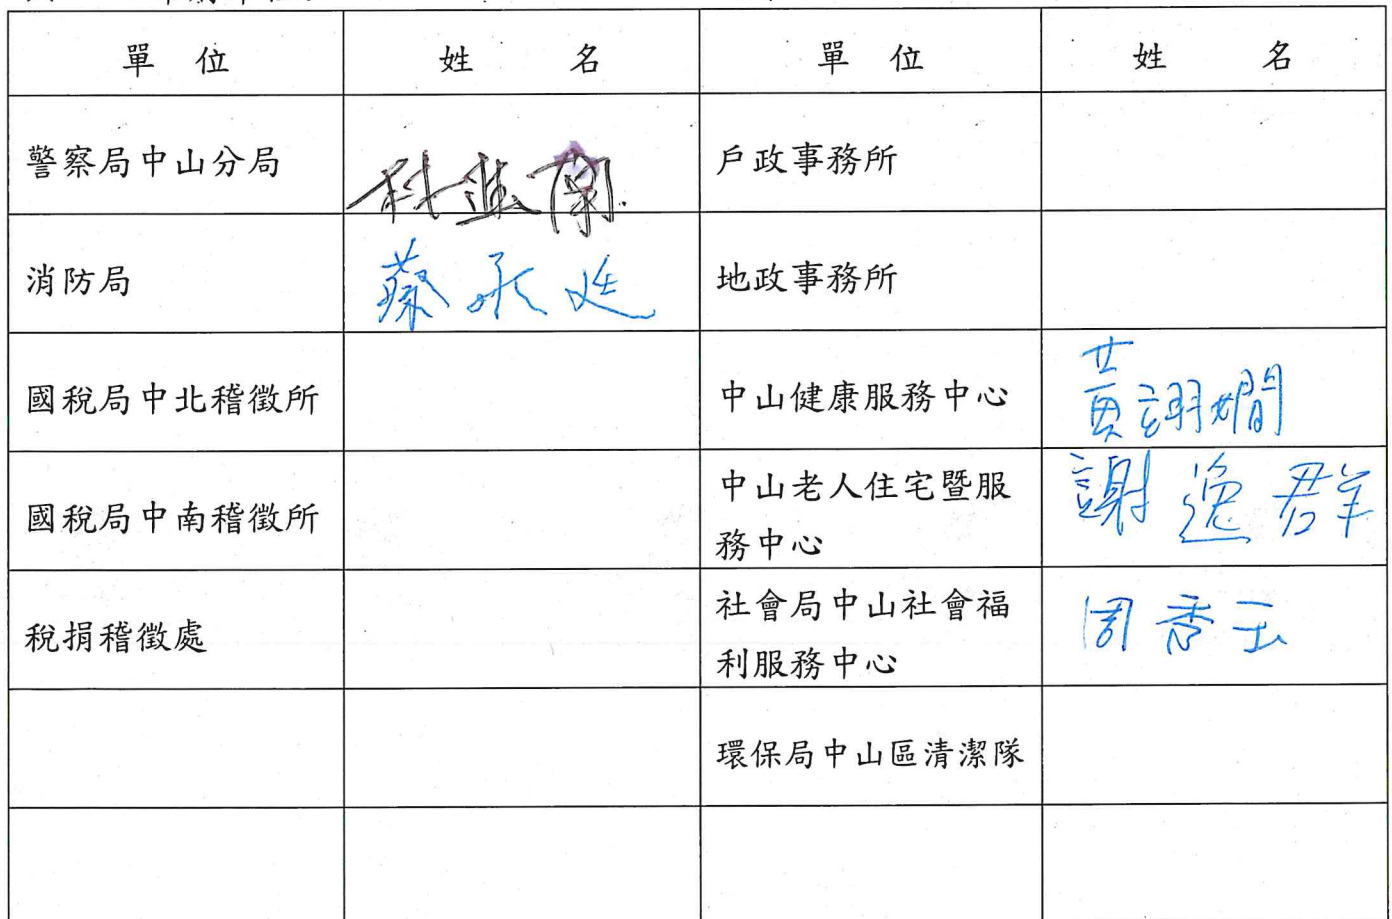 單位 姓名 單位 姓名
警察局中山分局 戶政事務所
消防局 蔡承廷 地政事務所
國稅局中北稽徵所 中山健康服務中心 黃翊嫺
國稅局中南稽徵所 中山老人住宅暨服
務中心 謝逸群
稅捐稽徵處 社會局中山社會福
利服務中心 周香玉
環保局中山區清潔隊